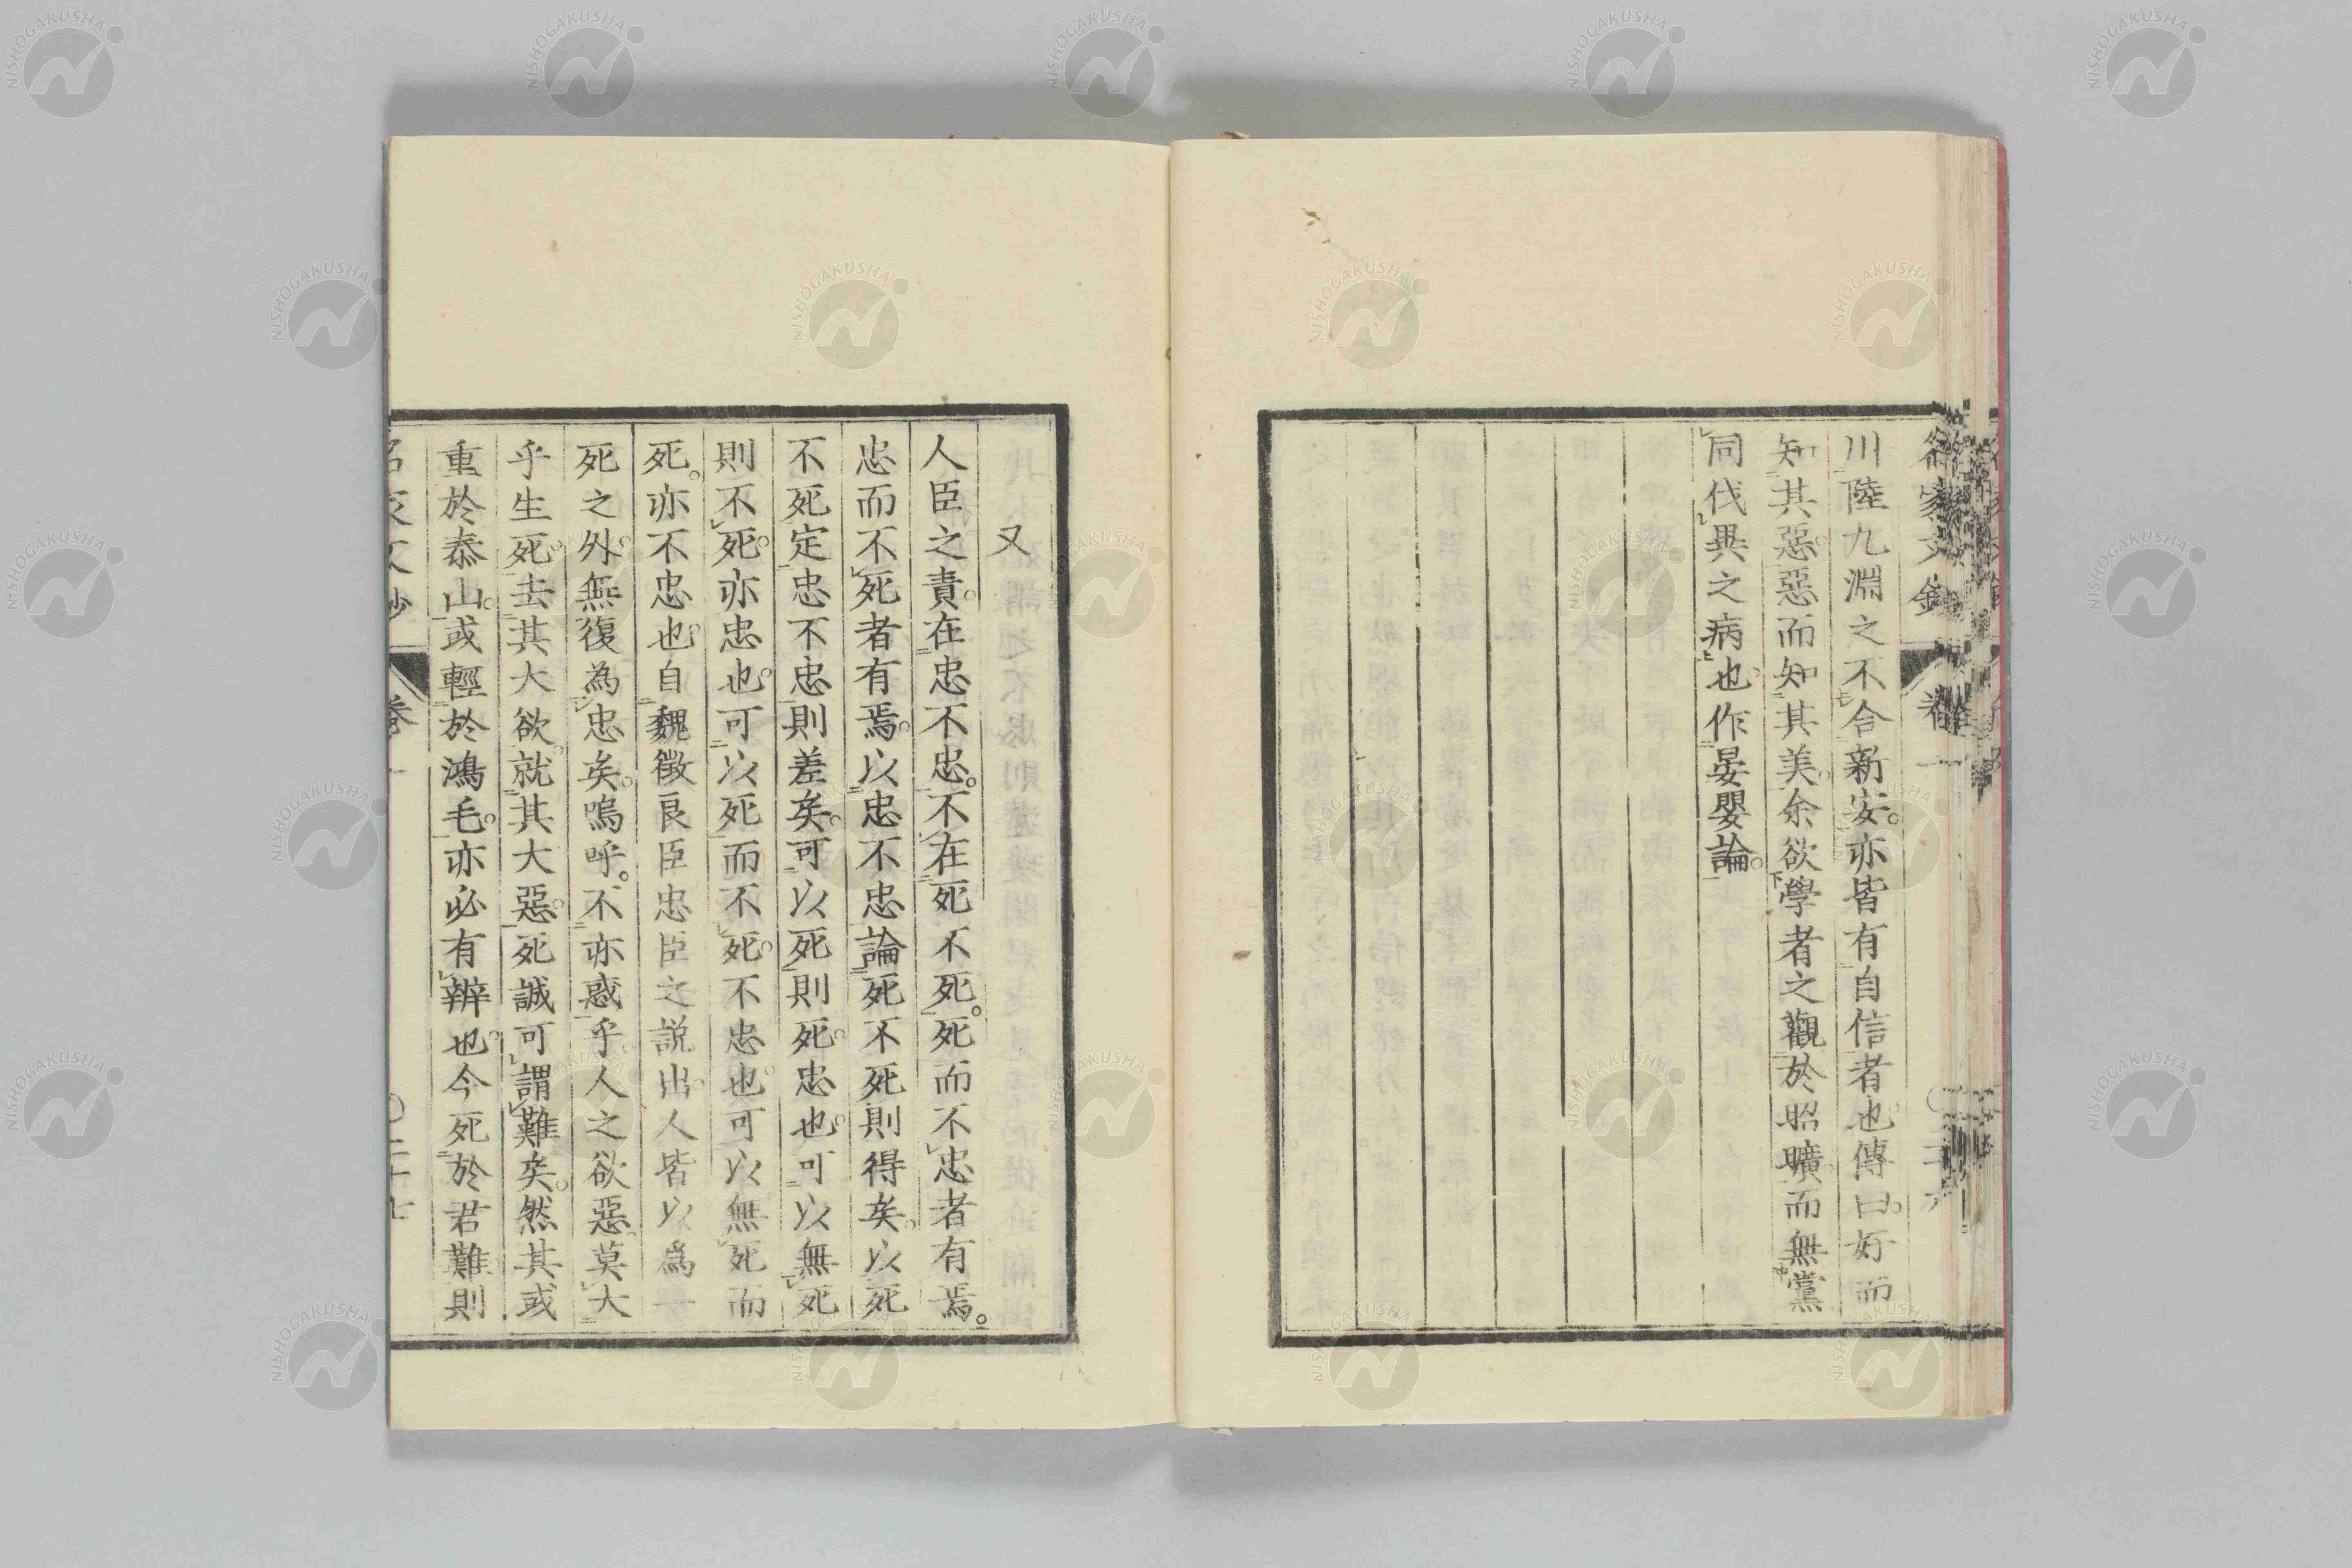 川陸九淵之不合新安。亦皆有自信者也傳曰。好而
知其惡。惡而知其美。余欲學者之觀於昭曠。而無黨
同伐異之病也。作晏嬰論。
又
人臣之責。在忠不忠。不在死不死。死而不忠者有焉。
忠而不死者有焉。以忠不忠論死不死則得矣。以死
不死定忠不忠則差矣。可以死則死。忠也。可以無死
則不死。亦忠也。可以死而不死。不忠也。可以無死而
死。亦不忠也。自魏徵良臣忠臣之説出。人皆以為一
死之外。無復為忠矣。嗚呼。不亦惑乎。人之欲惡。莫大
乎生死。去其大欲。就其大惡。死誠可謂難矣。然其或
重於泰山。或輕於鴻毛。亦必有辨也。今死於君難則
名家文鈔
卷一
二十七
NISHOGAKUSHA